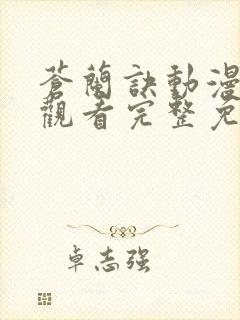 蒼蘭訣動漫
觀看完整免
卓志强